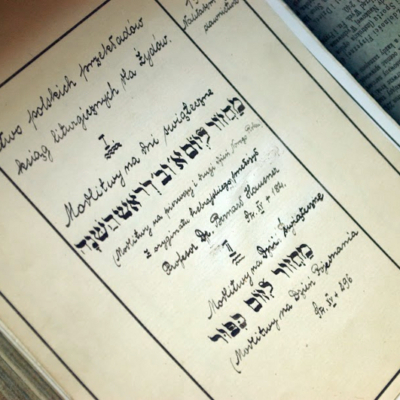 two polskich przekładów
ksiąg liturgicznych dla Żydów.
I
Modlitwy na dni świąteczne
מחזור ליום א וב׳ דראש השנה
(Modlitwy na pierwszy i drugi dzień
Z oryginału hebrajskiego przełożył
Profesor Dr. Bernard Hausner
Str. IV + 184.
II
Modlitwy na Dni Świąteczne
מחזור ליום כפור
(Modlitwy na Dzień Pojednania
Str. IV + 296